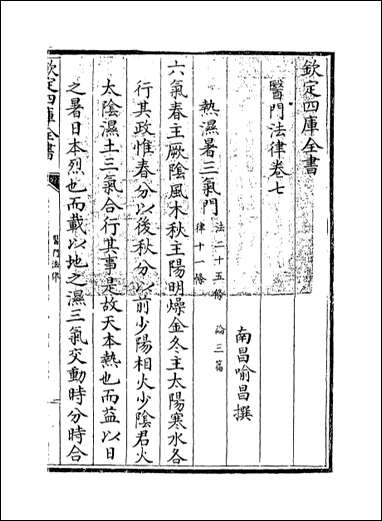 欽定四庫全書
醫門法律卷七
南昌喻昌撰
熱濕暑三氣門
法二十五條 論三篇
律十一條
六氣春主厥陰風木秋主陽明燥金冬主太陽寒水各
行其政惟春分以後秋分以前少陽相火少陰君火
太陰濕土三氣合行其事是故天本熱也而益以日
之暑日本烈也而載以地之濕三氣交動時分時合
欽定四庫全書
醫門法律